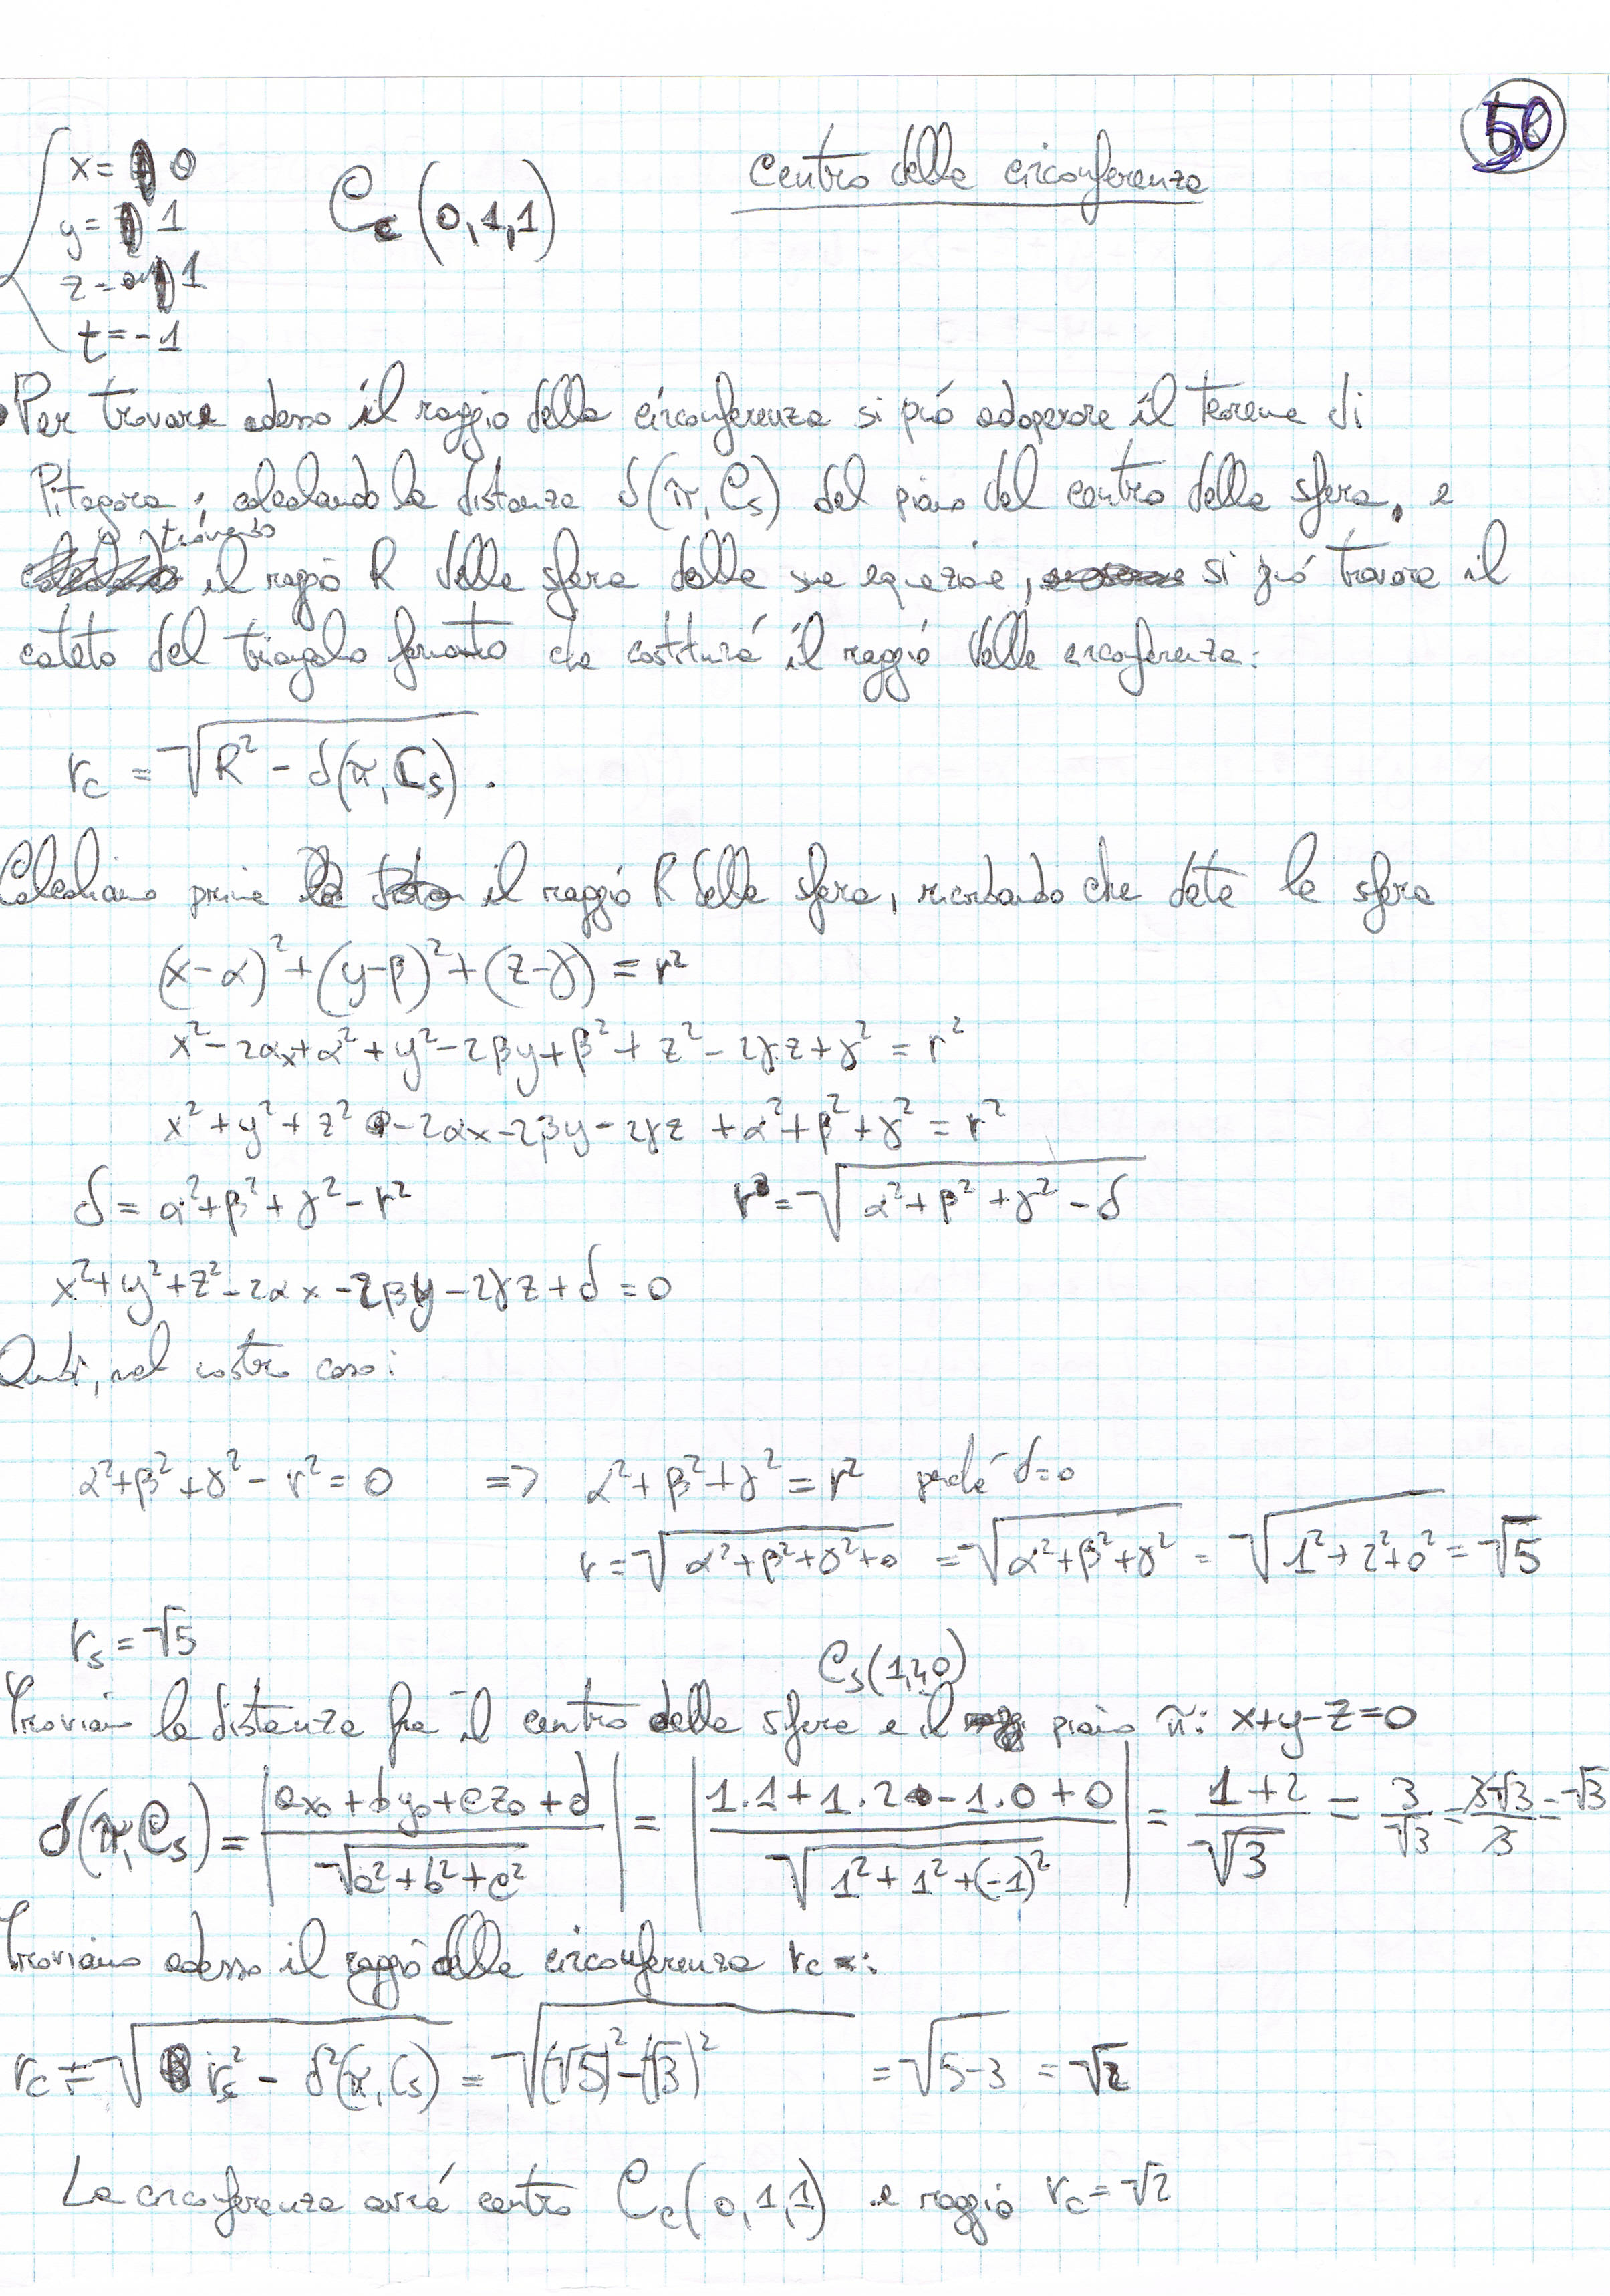 50
Centro della circonferenza
x = 0
y = 1
z = 1
t = -1
C_c (0,1,1)
Per trovare adesso il raggio della circonferenza si può adoperare il teorema di
Pitagora; calcolando la distanza δ(π, C_s) del piano dal centro della sfera, e
trovando
il raggio R della sfera dalla sua equazione, si può trovare il
cateto del triangolo formato che costituirá il raggio della circonferenza:
r_c = √(R² - δ(π, C_s)) .
Calcoliamo prima il raggio R della sfera, ricordando che data la sfera
(x-α)² + (y-β)² + (z-γ) = r²
x² - 2αx + α² + y² - 2βy + β² + z² - 2γz + γ² = r²
x² + y² + z² - 2αx - 2βy - 2γz + α² + β² + γ² = r²
δ = α² + β² + γ² - r² r = √(α² + β² + γ² - δ)
x² + y² + z² - 2αx - 2βy - 2γz + δ = 0
Quindi, nel nostro caso:
α² + β² + γ² - r² = 0 => α² + β² + γ² = r² perché δ=0
r = √(α² + β² + γ² + 0) = √(α² + β² + γ²) = √(1² + 2² + 0²) = √5
r_s = √5
C_s(1,2,0)
Troviamo la distanza fra il centro della sfera e il piano π: x+y-z=0
δ(π, C_s) = |(ax₀ + by₀ + cz₀ + d)/√(a² + b² + c²)| = |(1·1 + 1·2 - 1·0 + 0)/√(1² + 1² + (-1)²)| = (1+2)/√3 = 3/√3 = 3√3/3 = √3
Troviamo adesso il raggio della circonferenza r_c:
r_c = √(r_s² - δ²(π, C_s)) = √((√5)² - (√3)²) = √(5-3) = √2
La circonferenza avrá centro C_c(0,1,1) e raggio r_c = √2